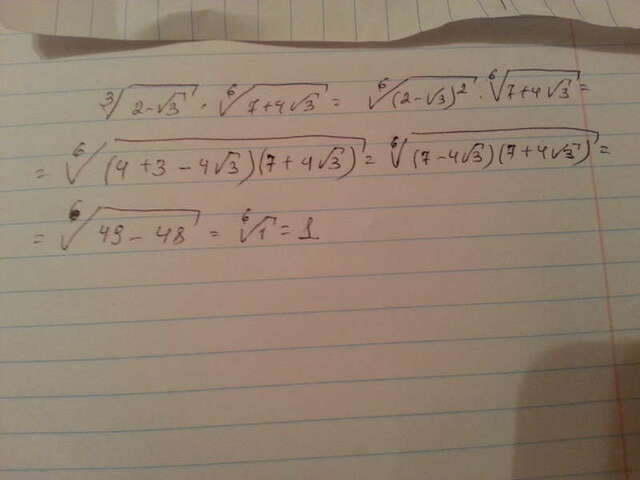 ∛(2-√3) · ⁶√(7+4√3) = ⁶√((2-√3)²) · ⁶√(7+4√3) =
= ⁶√((4+3-4√3)(7+4√3)) = ⁶√((7-4√3)(7+4√3)) =
= ⁶√(49-48) = ⁶√1 = 1